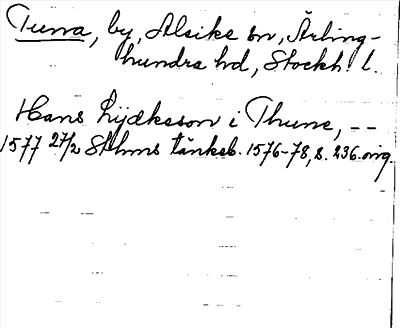 Tuna, by, Alsike sn, Ärling-
hundra hd, Stockh. l.
Hans Lydkeson i Thune, --
1577 27/2 Sthlms tänkeb. 1576-78, s. 236. orig.